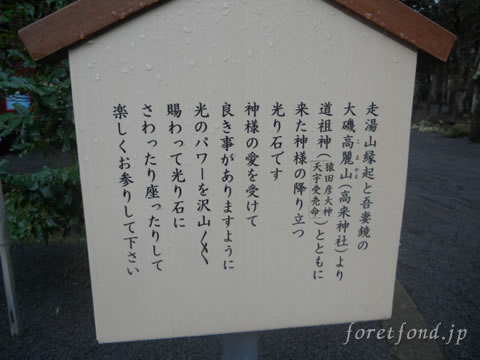 走湯山縁起と吾妻鏡の
大磯高麗山(高来神社)より
こまやま
道祖神(猿田彦大神 天宇受売命)とともに
来た神様の降り立つ
光り石です
神様の愛を受けて
良き事がありますように
光のパワーを沢山〱
賜わって光り石に
さわったり座ったりして
楽しくお参りして下さい
foretfond.jp